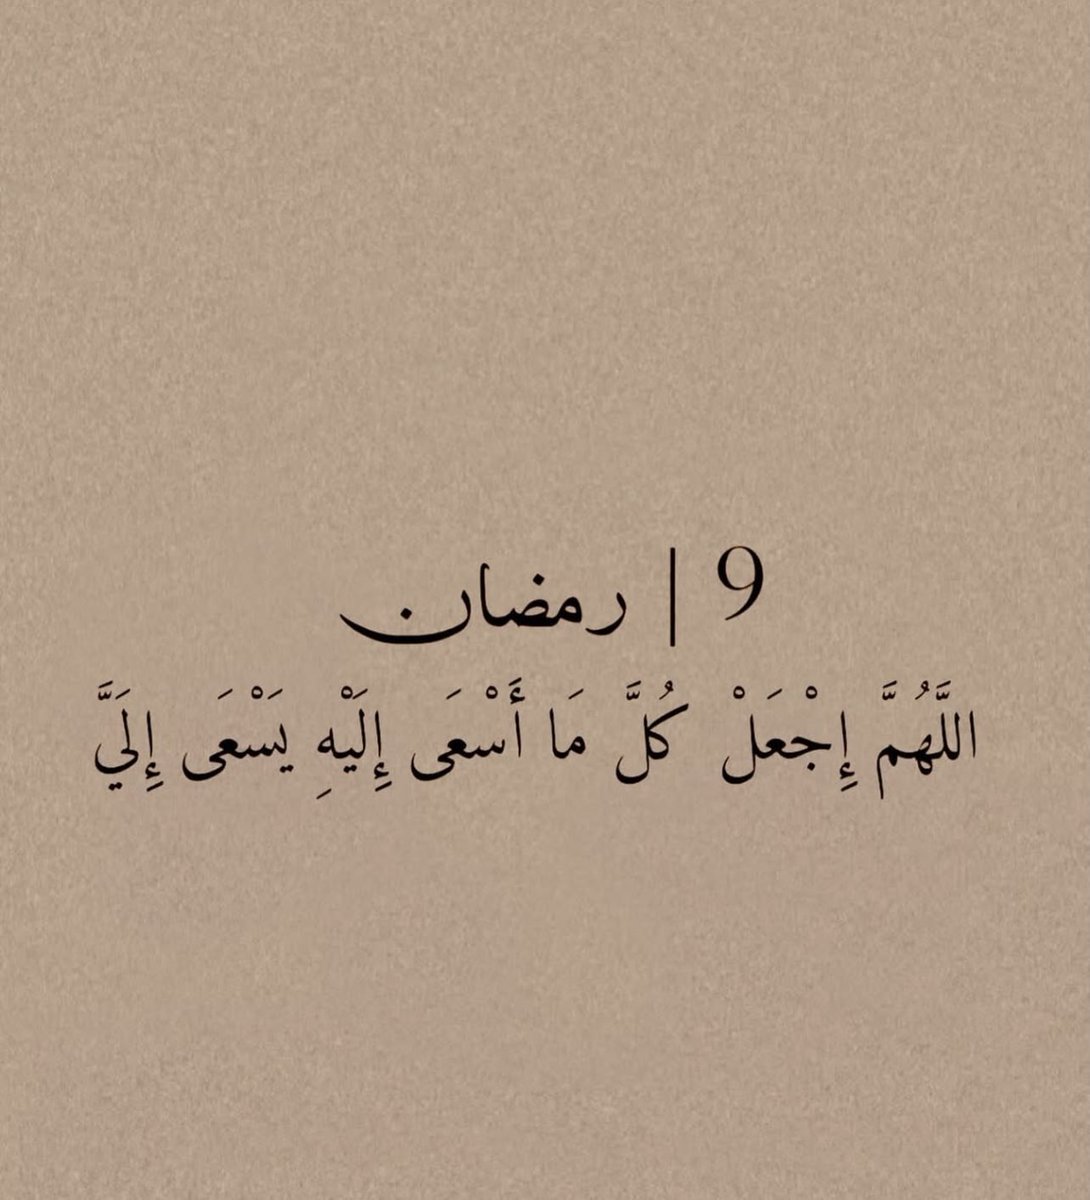 9 | رمضان
اللَّهُمَّ إِجْعَلْ كُلَّ مَا أَسْعَى إِلَيْهِ يَسْعَى إِلَيَّ